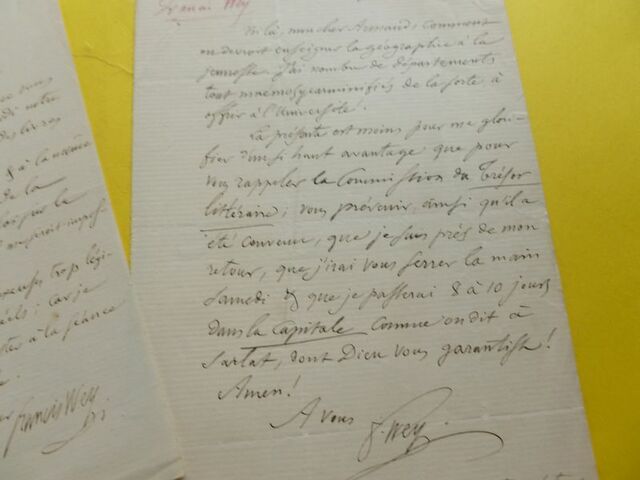 Wey
Voilà, mon cher Armand, comment
on devroit enseigner la géographie à la
jeunesse. J'ai nombre de départements
tout mnémosycarminifiés de la sorte à
offrir à l'Université!
La présente est moins pour me glori-
fier d'un si haut avantage que pour
vous rappeler la Commission du Trésor
littéraire; vous prévenir, ainsi qu'il a
été convenu, que je suis près de mon
retour, que j'irai vous serrer la main
samedi & que je passerai 8 à 10 jours
dans la capitale comme on dit à
Sarlat, dont Dieu vous garantisse!
Amen!
A vous
F. Wey.
vous
notre
des livres
& à la même
de la
lorsque la
trop légi-
; car je
à la séance
Francis Wey